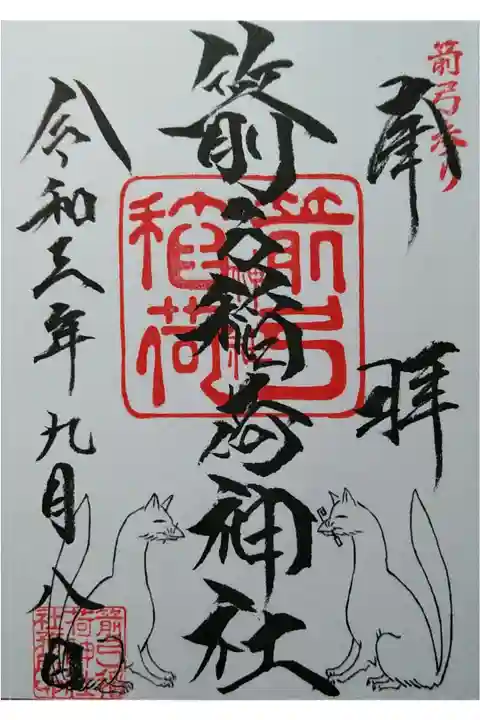 箭弓参り
奉拝
箭弓稲荷神社
箭弓稲荷神社
令和三年九月八日
箭弓稲荷神社社務所印